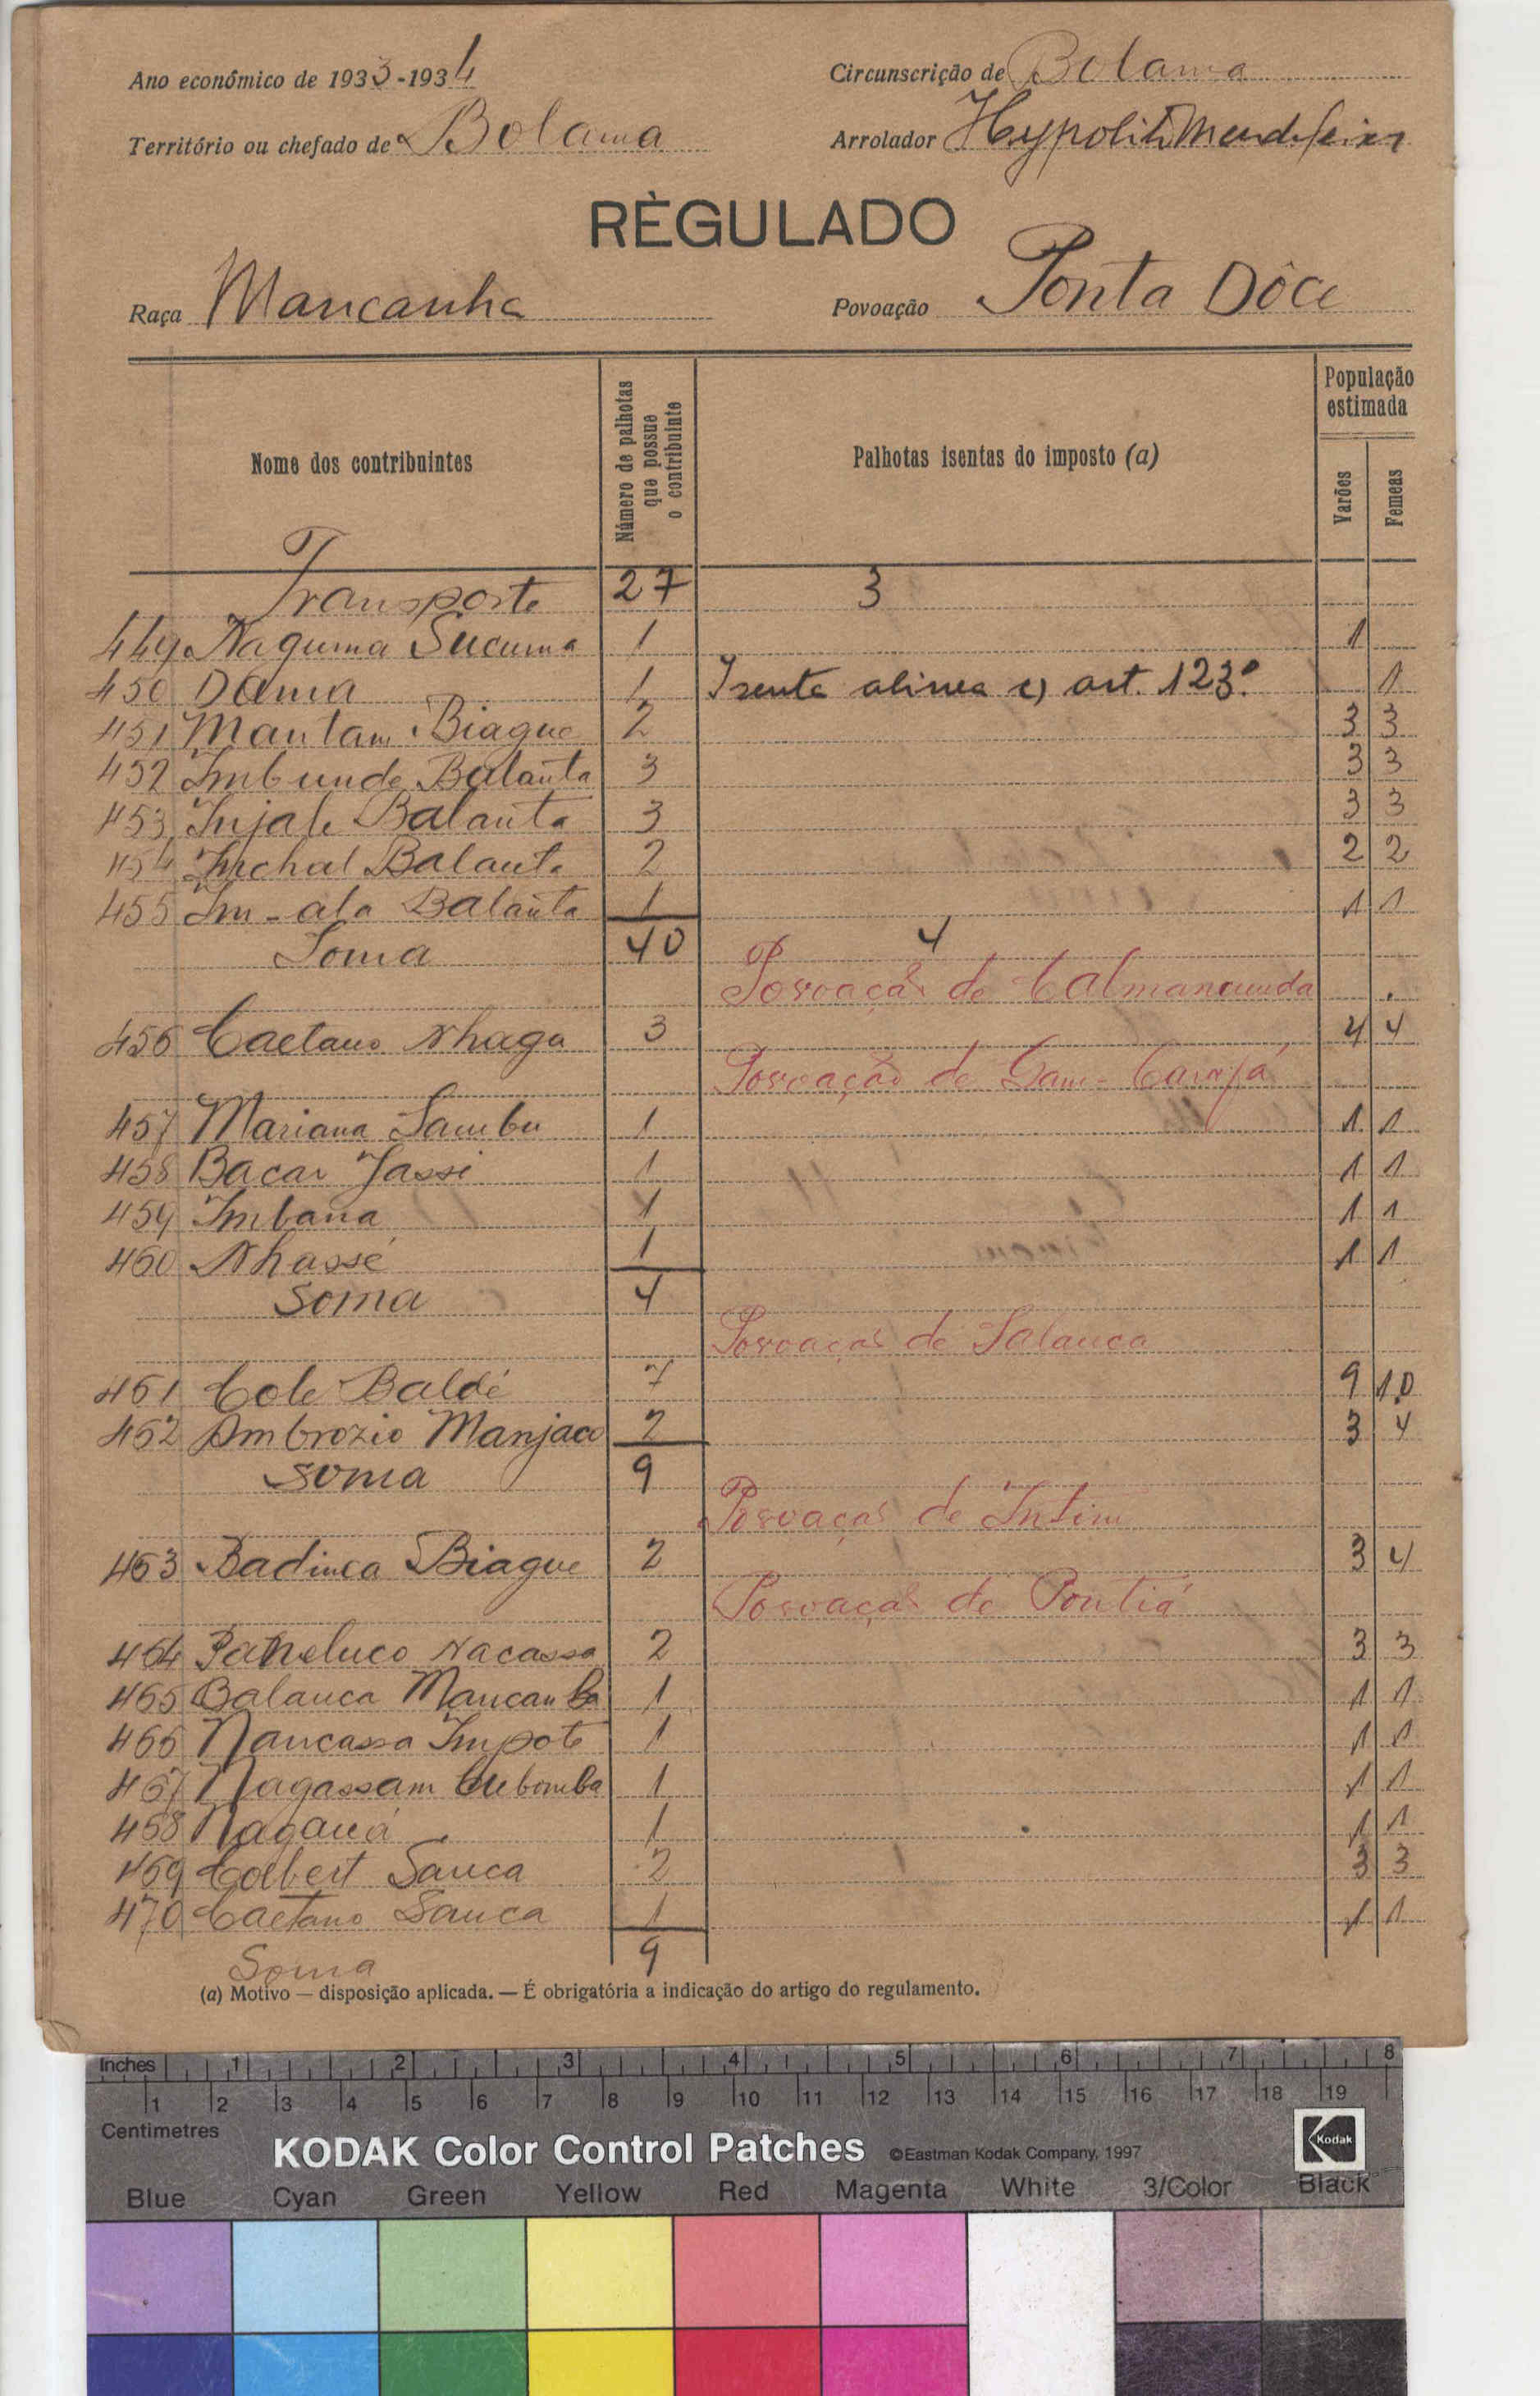 Ano económico de 1933-1934
Circunscrição de Bolama
Território ou chefado de Bolama
Arrolador Hypolito
RÈGULADO
Raça Mancanha
Povoação Ponta Dôce
Nome dos contribuintes
Número de palhotas que possue o contribuinte
Palhotas isentas do imposto (a)
População estimada
Varões
Femeas
Transporte 27 3
449 Naguma Sucuma 1 1
450 Dama 1 Isenta alinea c) art. 123.º 1
451 Mantam Biague 2 3 3
452 Imbunde Balanta 3 3 3
453 Injale Balanta 3 3 3
454 Inchal Balanta 2 2 2
455 Im-ala Balanta 1 1 1
Soma 40 4
Povoação de Calmancunda
456 Caetano Nhaga 3 4 4
Povoação de Gam-
457 Mariana Sambu 1 1 1
458 Bacar Jassi 1 1 1
459 Imbana 1 1 1
460 Nhassé 1 1 1
Soma 4
Povoação de Salanca
461 Cole Baldé 7 9 10
462 Ambrozio Manjaco 2 3 4
Soma 9
Povoação de Intim
463 Badinca Biague 2 3 4
Povoação de Pontiá
464 Nacassa 2 3 3
465 Balanca Mancanha 1 1 1
466 Nancassa Impote 1 1 1
467 Nagassam 1 1 1
468 1 1 1
469 Colbert Sanca 2 3 3
470 Caetano Sanca 1 1 1
Soma 9
(a) Motivo — disposição aplicada. — É obrigatória a indicação do artigo do regulamento.
Inches 1 2 3 4 5 6 7 8
1 2 3 4 5 6 7 8 9 10 11 12 13 14 15 16 17 18 19
Centimetres
KODAK Color Control Patches ©Eastman Kodak Company, 1997 Kodak
Blue Cyan Green Yellow Red Magenta White 3/Color Black